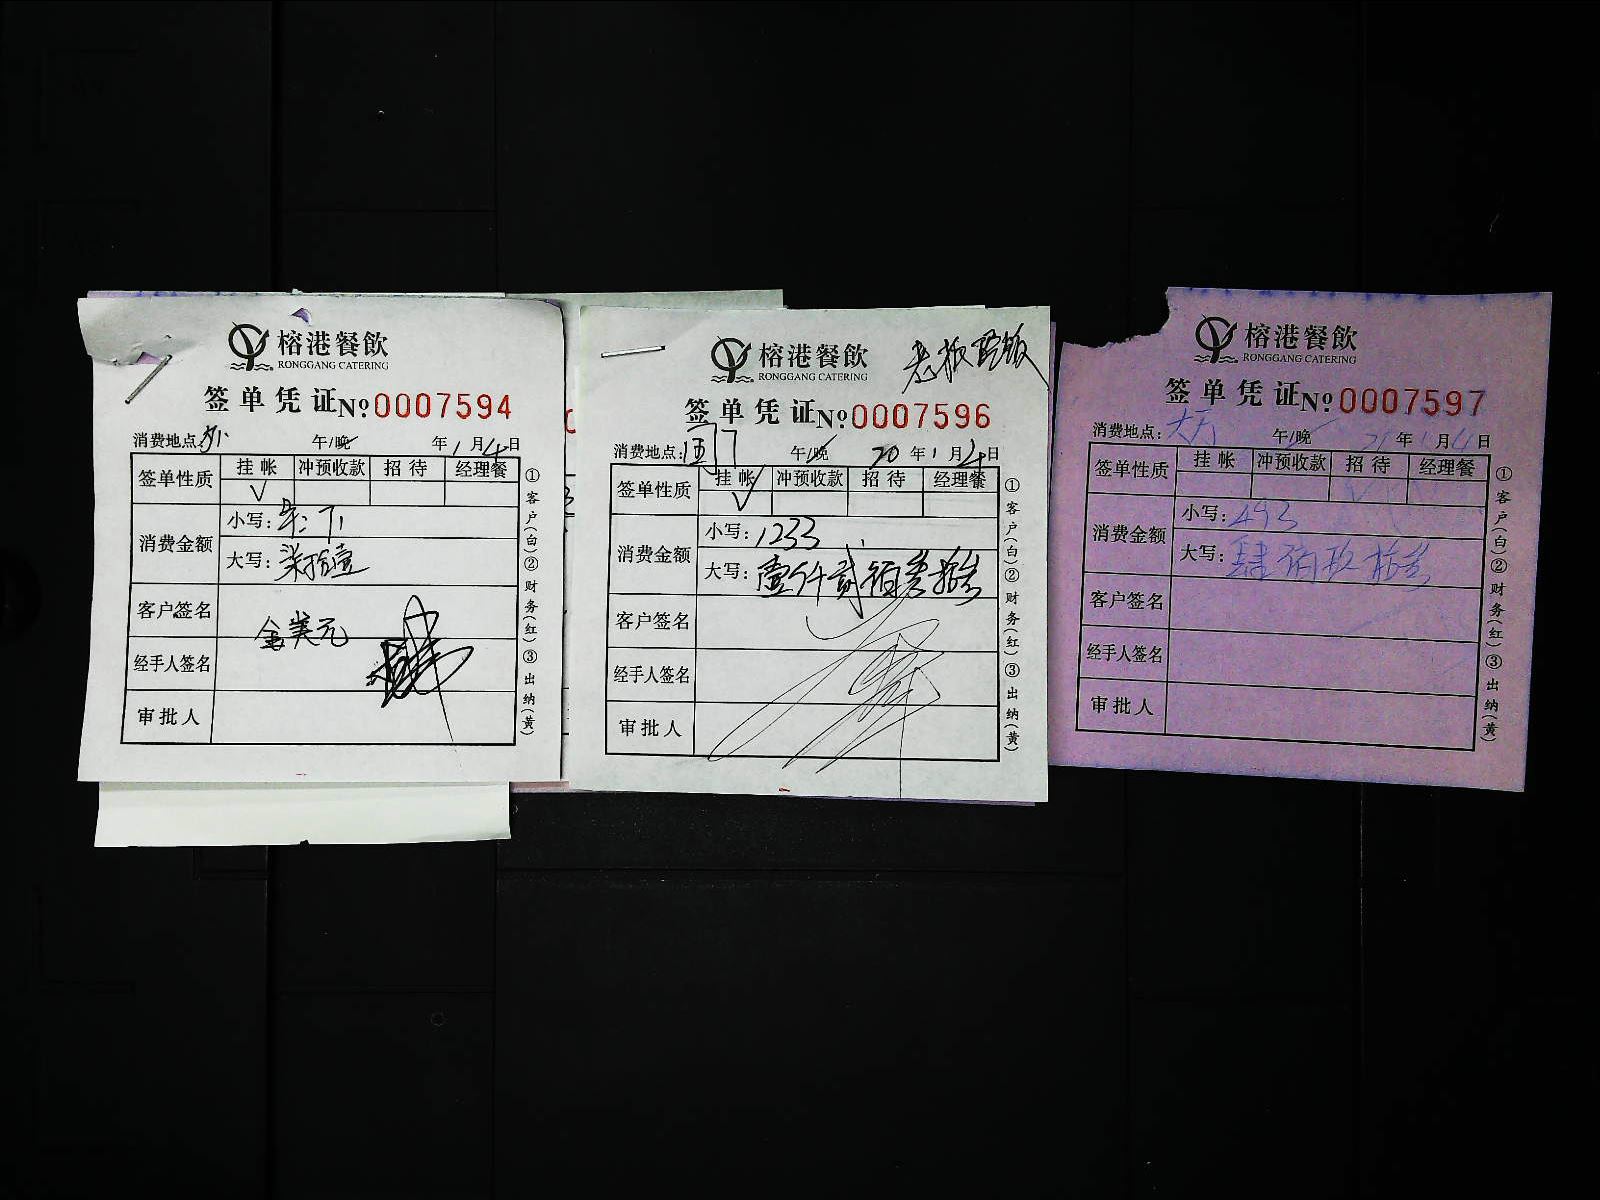 榕港餐飲
RONGGANG CATERING
签单凭证 No 0007594
消费地点: 午/晚 年 1 月 4 日
签单性质 挂帐 冲预收款 招待 经理餐
√
消费金额 小写:
大写: 柒拾壹
客户签名 金美元
经手人签名
审批人
①客户(白)②财务(红)③出纳(黄)
榕港餐飲
RONGGANG CATERING
签单凭证 No 0007596
消费地点: 午/晚 20 年 1 月 4 日
签单性质 挂帐 冲预收款 招待 经理餐
√
消费金额 小写: 1233
大写: 壹仟贰佰叁拾叁
客户签名
经手人签名
审批人
①客户(白)②财务(红)③出纳(黄)
榕港餐飲
RONGGANG CATERING
签单凭证 No 0007597
消费地点: 午/晚 年 1 月 4 日
签单性质 挂帐 冲预收款 招待 经理餐
√
消费金额 小写: 493
大写: 肆佰玖拾叁
客户签名
经手人签名
审批人
①客户(白)②财务(红)③出纳(黄)